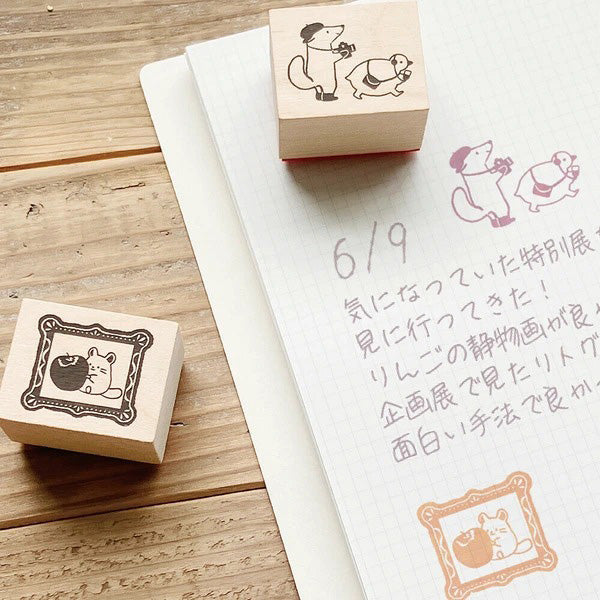 6/9
気になっていた特別展を
見に行ってきた!
りんごの静物画が良か
企画展で見たリトグ
面白い手法で良かっ